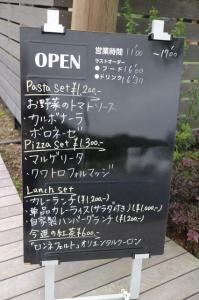 OPEN
営業時間 11:00 〜17:00
ラストオーダー
●フード 16:00
●ドリンク 16:30
Pasta set ¥1,200-
・お野菜のトマトソース
・カルボナーラ
・ボロネーゼ
Pizza set ¥1,300-
・マルゲリータ
・クワトロフォルマッジ
Lunch set
・カレーランチ(¥1,200-)
・単品カレーライス(サラダ付き)(¥1,000-)
・自家製ハンバーグランチ(¥1,200-)
今週の紅茶¥600-
「ロンネフェルト」オリエンタルウーロン